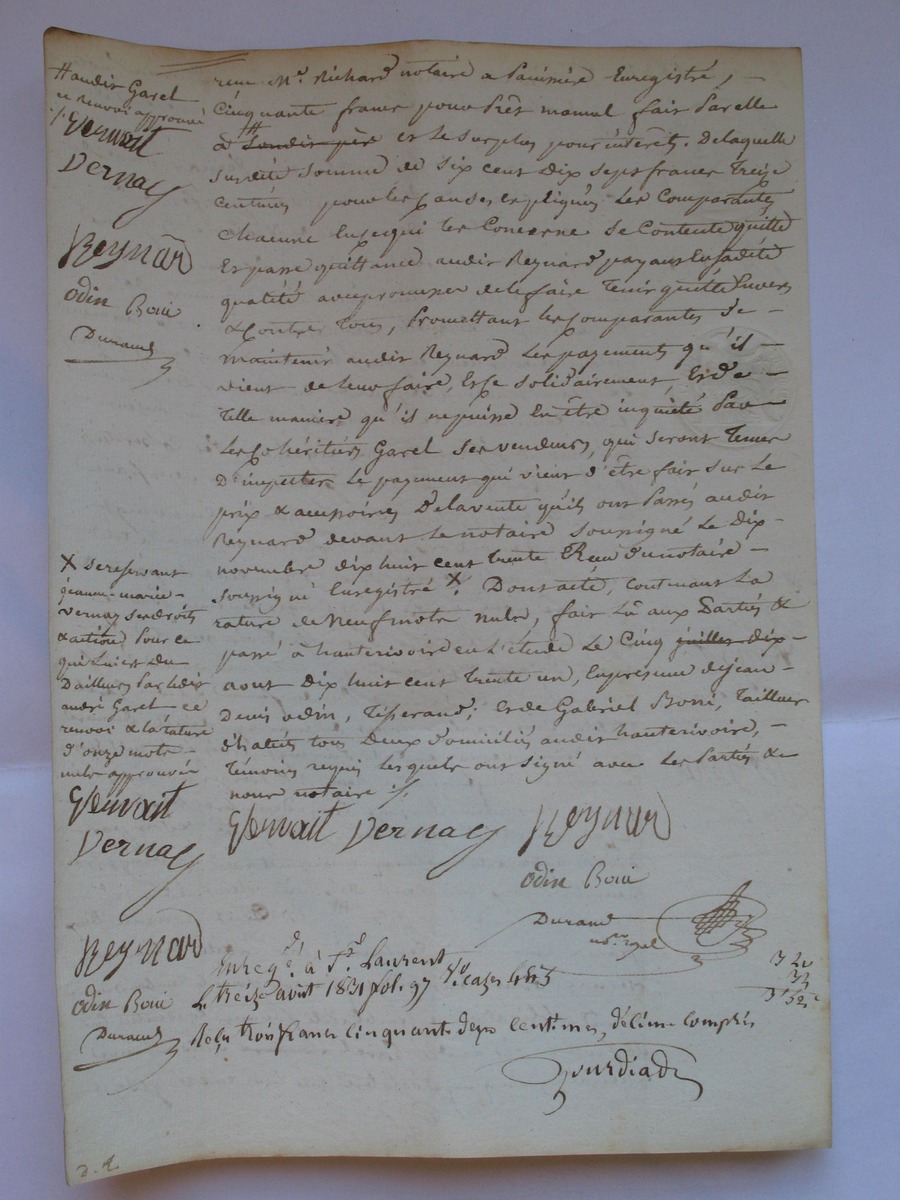 # audit Garel
ce renvoi approuvé
Gervait
Vernay
Reynard
odin Boni
Durand
reçu Me. Richard notaire a Panissière Enregistré, —
Cinquante francs pour Prêt manuel fait Par elle
à # Laudit père et le surplus pour intérêts. De laquelle
susdite somme de six cent dix sept francs treize
centimes pour les causes expliquées les Comparantes
chacune En ce qui les Concerne se Contente quitte
Et passe quittance audit Reynard payant En sadite
qualité avec promesse de le faire tenir quitte Envers
& Contre tous, Promettant les comparantes de —
maintenir audit Reynard les payements qu'il —
vient de leur faire, Et ce solidairement, Et de —
telle manière qu'il ne puisse En être inquiété Par —
Les Cohéritiers Garel ses vendeurs, qui seront tenus
D'imputer le payement qui vient d'être fait sur le
prix & accessoires De la vente qu'ils ont Passés audit
Reynard devant le notaire soussigné le Dix-
novembre dix huit cent trente Reçu du notaire —
soussigné Enregistré X. Dont acte, contenant la
rature de neuf mots nuls, fait lû aux Parties &
passé à hauterivoire en l'étude Le Cinq juillet dix-
aout Dix huit cent trente un, En présence de jean —
Denis odin, Tisserand, Et de Gabriel Boni, Tailleur
d'habits tous Deux domiciliés audit hauterivoire, —
témoins requis lesquels ont signé avec Les Parties &
nous notaire ./.
X se réservant
jeanne-marie —
vernay ses droits
& action Pour ce
qui lui est Du
D'ailleurs Par ledit
andré Garel ce
renvoi & la rature
d'onze mots —
nuls approuvée
Gervait
Vernay
Gervait Vernay Reynard
odin Boni
Durand
nore. royal
Reynard
odin Boni
Durand
Enregé. à St. Laurent
Le treize août 1831 fol. 97 Vo. cazes 4 & 5
Reçu trois francs cinquante deux centimes, décime compris
3 20
32
3 52
Jourdiada
D. R.